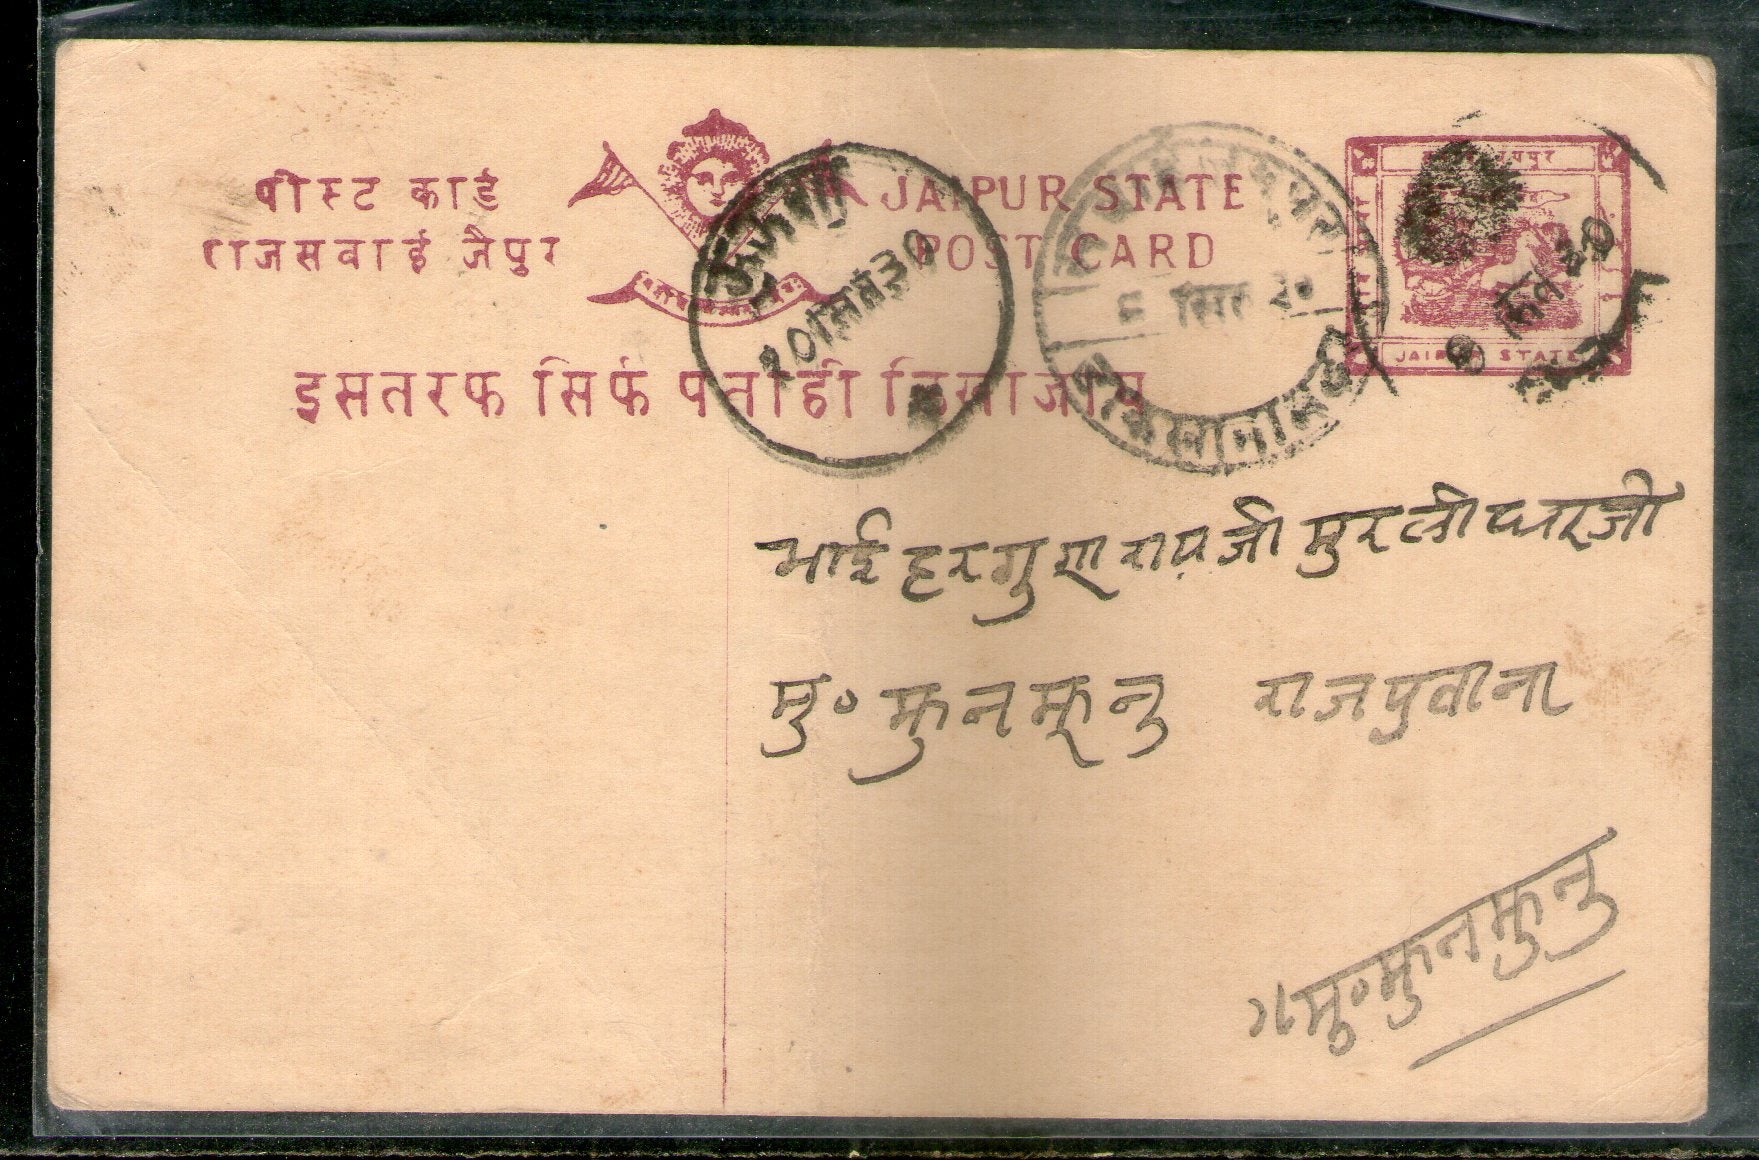 पोस्ट कार्ड
राजसवाई जैपुर
JAIPUR STATE
POST CARD
इसतरफ सिर्फ पताही लिखाजाय
JAIPUR STATE
१० सितं ३०
सित ३०
भाई हरगुणरायजी मुरलीधरजी
मु॰ झुनझुनु राजपुताना
मु॰ झुनझुनु